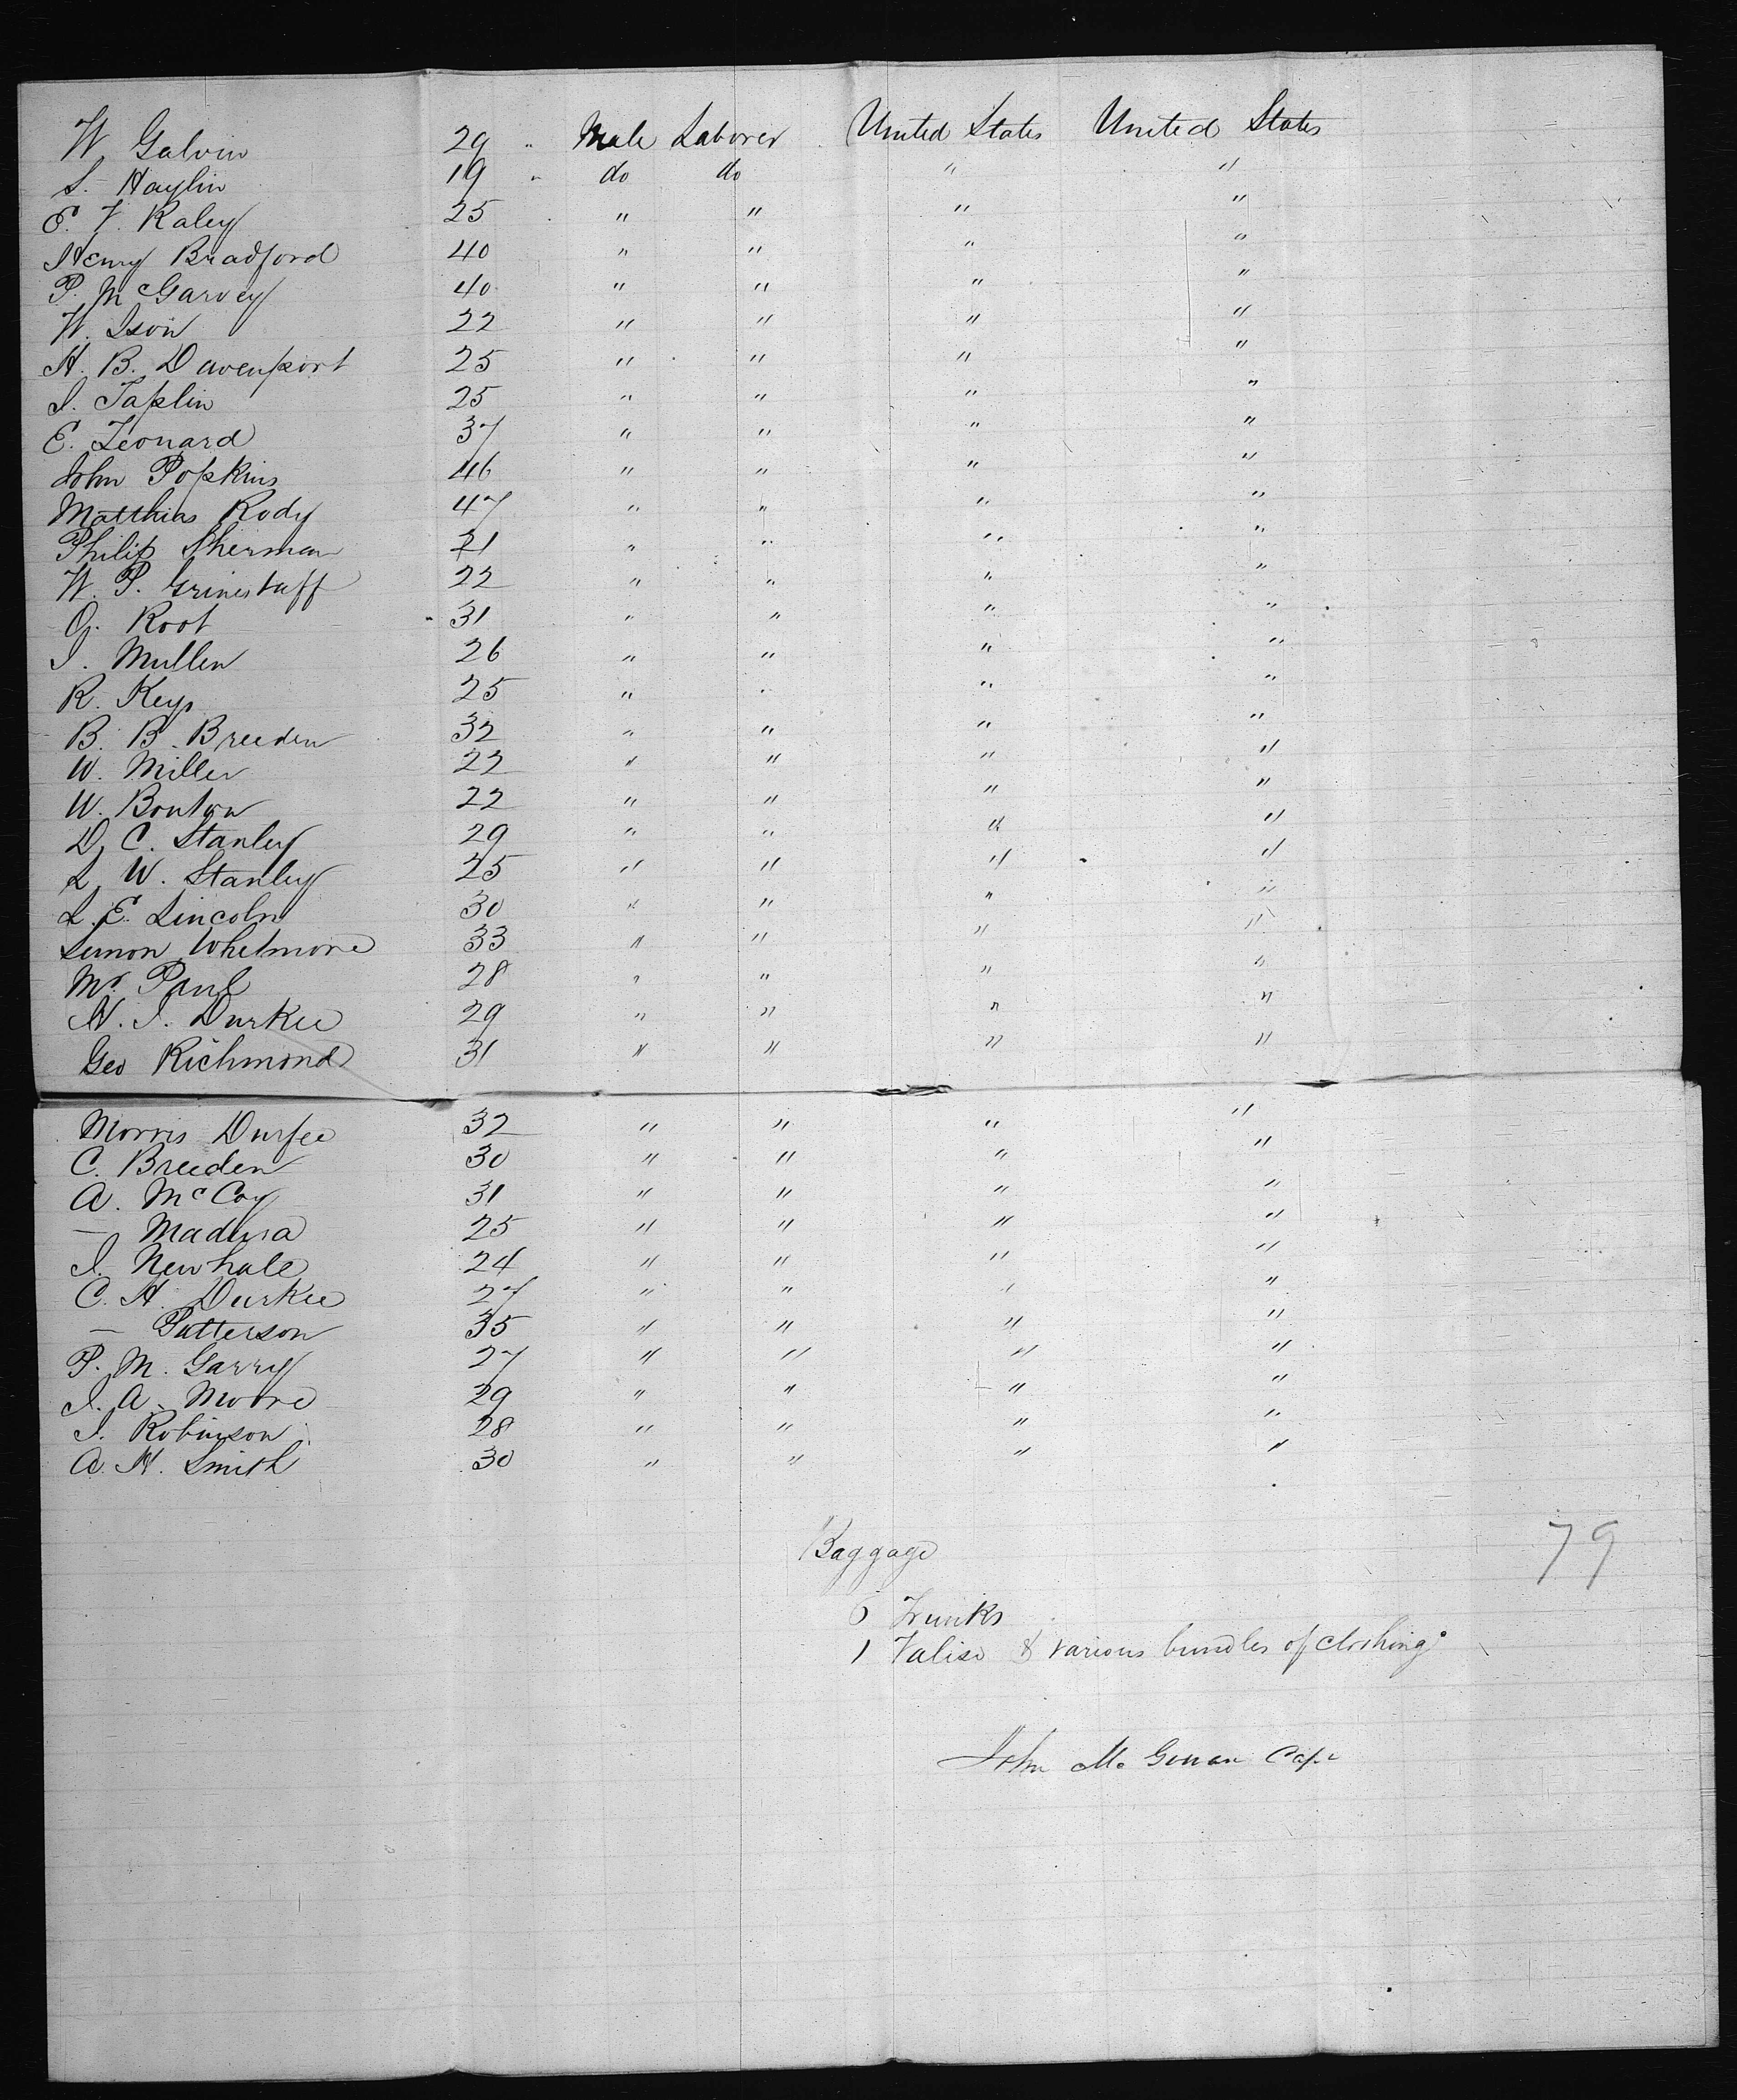 W. Galvin 29 " Male Laborer United States United States
S. Haylin 19 " do do " "
E. V. Raley 25 " " " "
Henry Bradford 40 " " " "
P. McGarvey 40 " " " "
W. Ison 22 " " " "
H. B. Davenport 25 " " " "
I. Taplin 25 " " " "
E. Leonard 37 " " " "
John Popkins 46 " " " "
Matthias Rody 47 " " " "
Philip Sherman 21 " " " "
W. P. Grinestaff 22 " " " "
O. Root 31 " " " "
I. Mullen 26 " " " "
R. Keys 25 " " " "
B. B. Breeden 32 " " " "
W. Miller 22 " " " "
W. Bonton 22 " " " "
D. C. Stanley 29 " " " "
L. W. Stanley 25 " " " "
L. E. Lincoln 30 " " " "
Lemon Whetmore 33 " " " "
Mr. Paul 28 " " " "
N. I. Durkee 29 " " " "
Geo Richmond 31 " " " "
Morris Durfee 32 " " " "
C. Breeden 30 " " " "
A. McCoy 31 " " " "
— 25 " " " "
I. Newhale 24 " " " "
C. H. Durkee 27 " " " "
— Patterson 35 " " " "
P. M. Garry 27 " " " "
I. A. Moore 29 " " " "
I. Robinson 28 " " " "
A. H. Smith 30 " " " "
Baggage
79
6 Trunks
1 Valise & various bundles of clothing
John Mc Capt